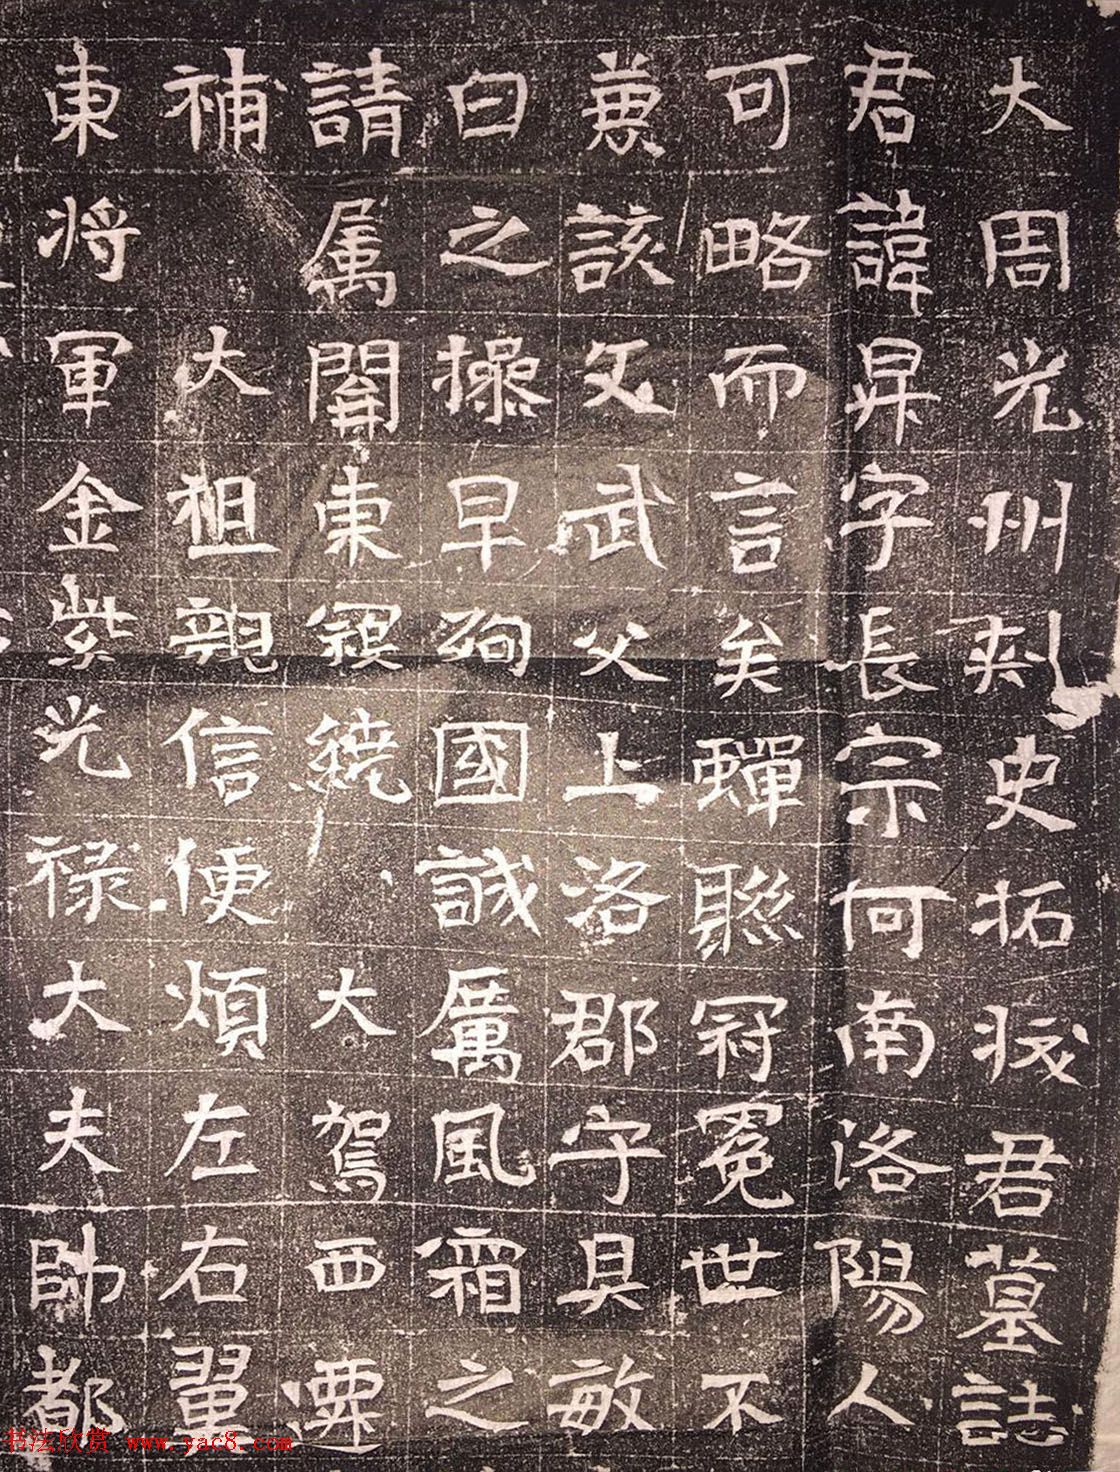 大周光州刾史拓拔君墓誌
君諱昇字長宗河南洛陽人
可略而言矣蟬聯冠冕世不
萇該文武父上洛郡守具敏
白之操早殉國誠厲風霜之
請属關東寇繞大駕西
補大祖親信便煩左右
東將軍金紫光禄大夫帥都
书法欣赏 www.yac8.com